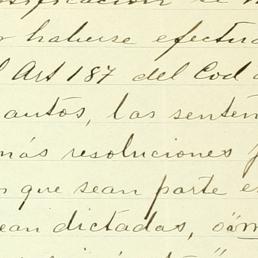 r haberse efectua
l Art 187 del Cod d
autos, las senten
más resoluciones
s que sean parte e
ean dictadas,